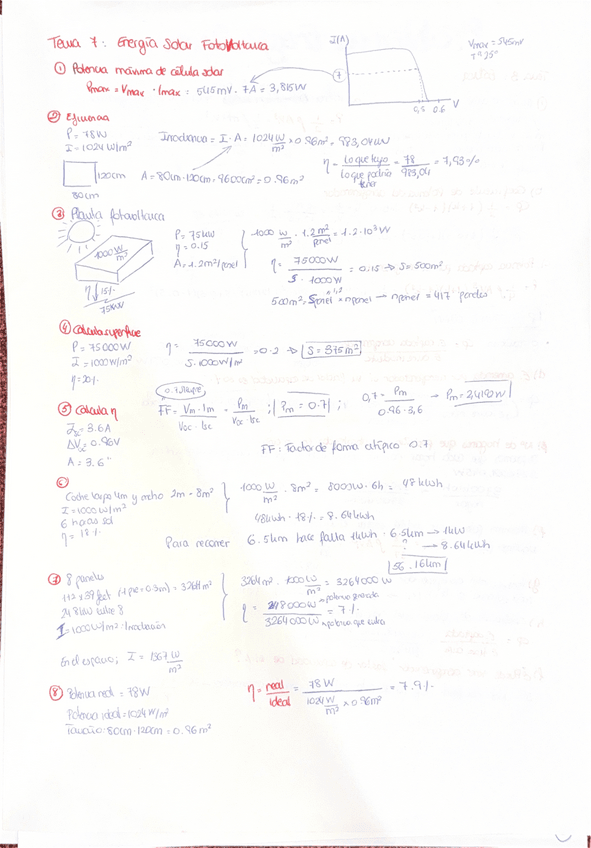 Tema 7: Energía Solar Fotovoltaica
I(A)
7
0,5 0.6 V
Vmax = 545mV
Tª 25°
① Potencia máxima de célula solar
Pmax = Vmax · Imax = 545mV · 7A = 3,815W
② Eficiencia
P = 78W
I = 1024 W/m²
120cm
80cm
Irradiancia = I · A = 1024 W/m² × 0.96m² = 983,04W
A = 80cm · 120cm = 9600cm² = 0.96m²
η = Lo que tengo / Lo que podría tener = 78 / 983,04 = 7,93%
③ Planta fotovoltaica
1000 W/m²
η 15%
75kW
P = 75kW
η = 0.15
A = 1.2m²/panel
1000 W/m² · 1.2 m²/panel = 1.2·10³W
η = 75000W / S · 1000W = 0,15 → S = 500m²
500m² = Spanel · npanel → npanel = 417 paneles
④ Calcula superficie
P = 75000W
I = 1000W/m²
η = 20%
η = 75000W / S·1000W/m² = 0.2 → S = 375m²
⑤ Calcula η
Isc = 3.6A
ΔVoc = 0.96V
A = 3.6"
0.7 siempre
FF = Vm · Im / Voc · Isc = Pm / Voc · Isc ; Pm = 0.7 ;
0,7 = Pm / 0.96·3,6 → Pm = 2,419W
FF: Factor de forma atípico 0.7
⑥
Coche largo 4m y ancho 2m = 8m²
I = 1000W/m²
6 horas sol
η = 18%
1000 W/m² · 8m² = 8000W · 6h = 48kWh
48kWh · 18% = 8.64kWh
Para recorrer 6.5km hace falta 1kWh · 6.5km → 1kW
? → 8.64kWh
56.16km
⑦ 8 paneles
24.8kW entre 8
I = 1000W/m² · Irradiación
3264m² · 1000 W/m² = 3264000W
η = 248000W → potencia generada / 3264000W → potencia que entra = 7%
En el espacio; I = 1367 W/m²
⑧ Potencia real = 78W
Potencia ideal = 1024W/m²
Tamaño: 80cm·120cm = 0.96m²
η = real / ideal = 78W / 1024 W/m² × 0.96m² = 7.9%